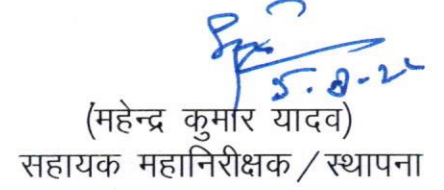 (महेन्द्र कुमार यादव)
सहायक महानिरीक्षक / स्थापना